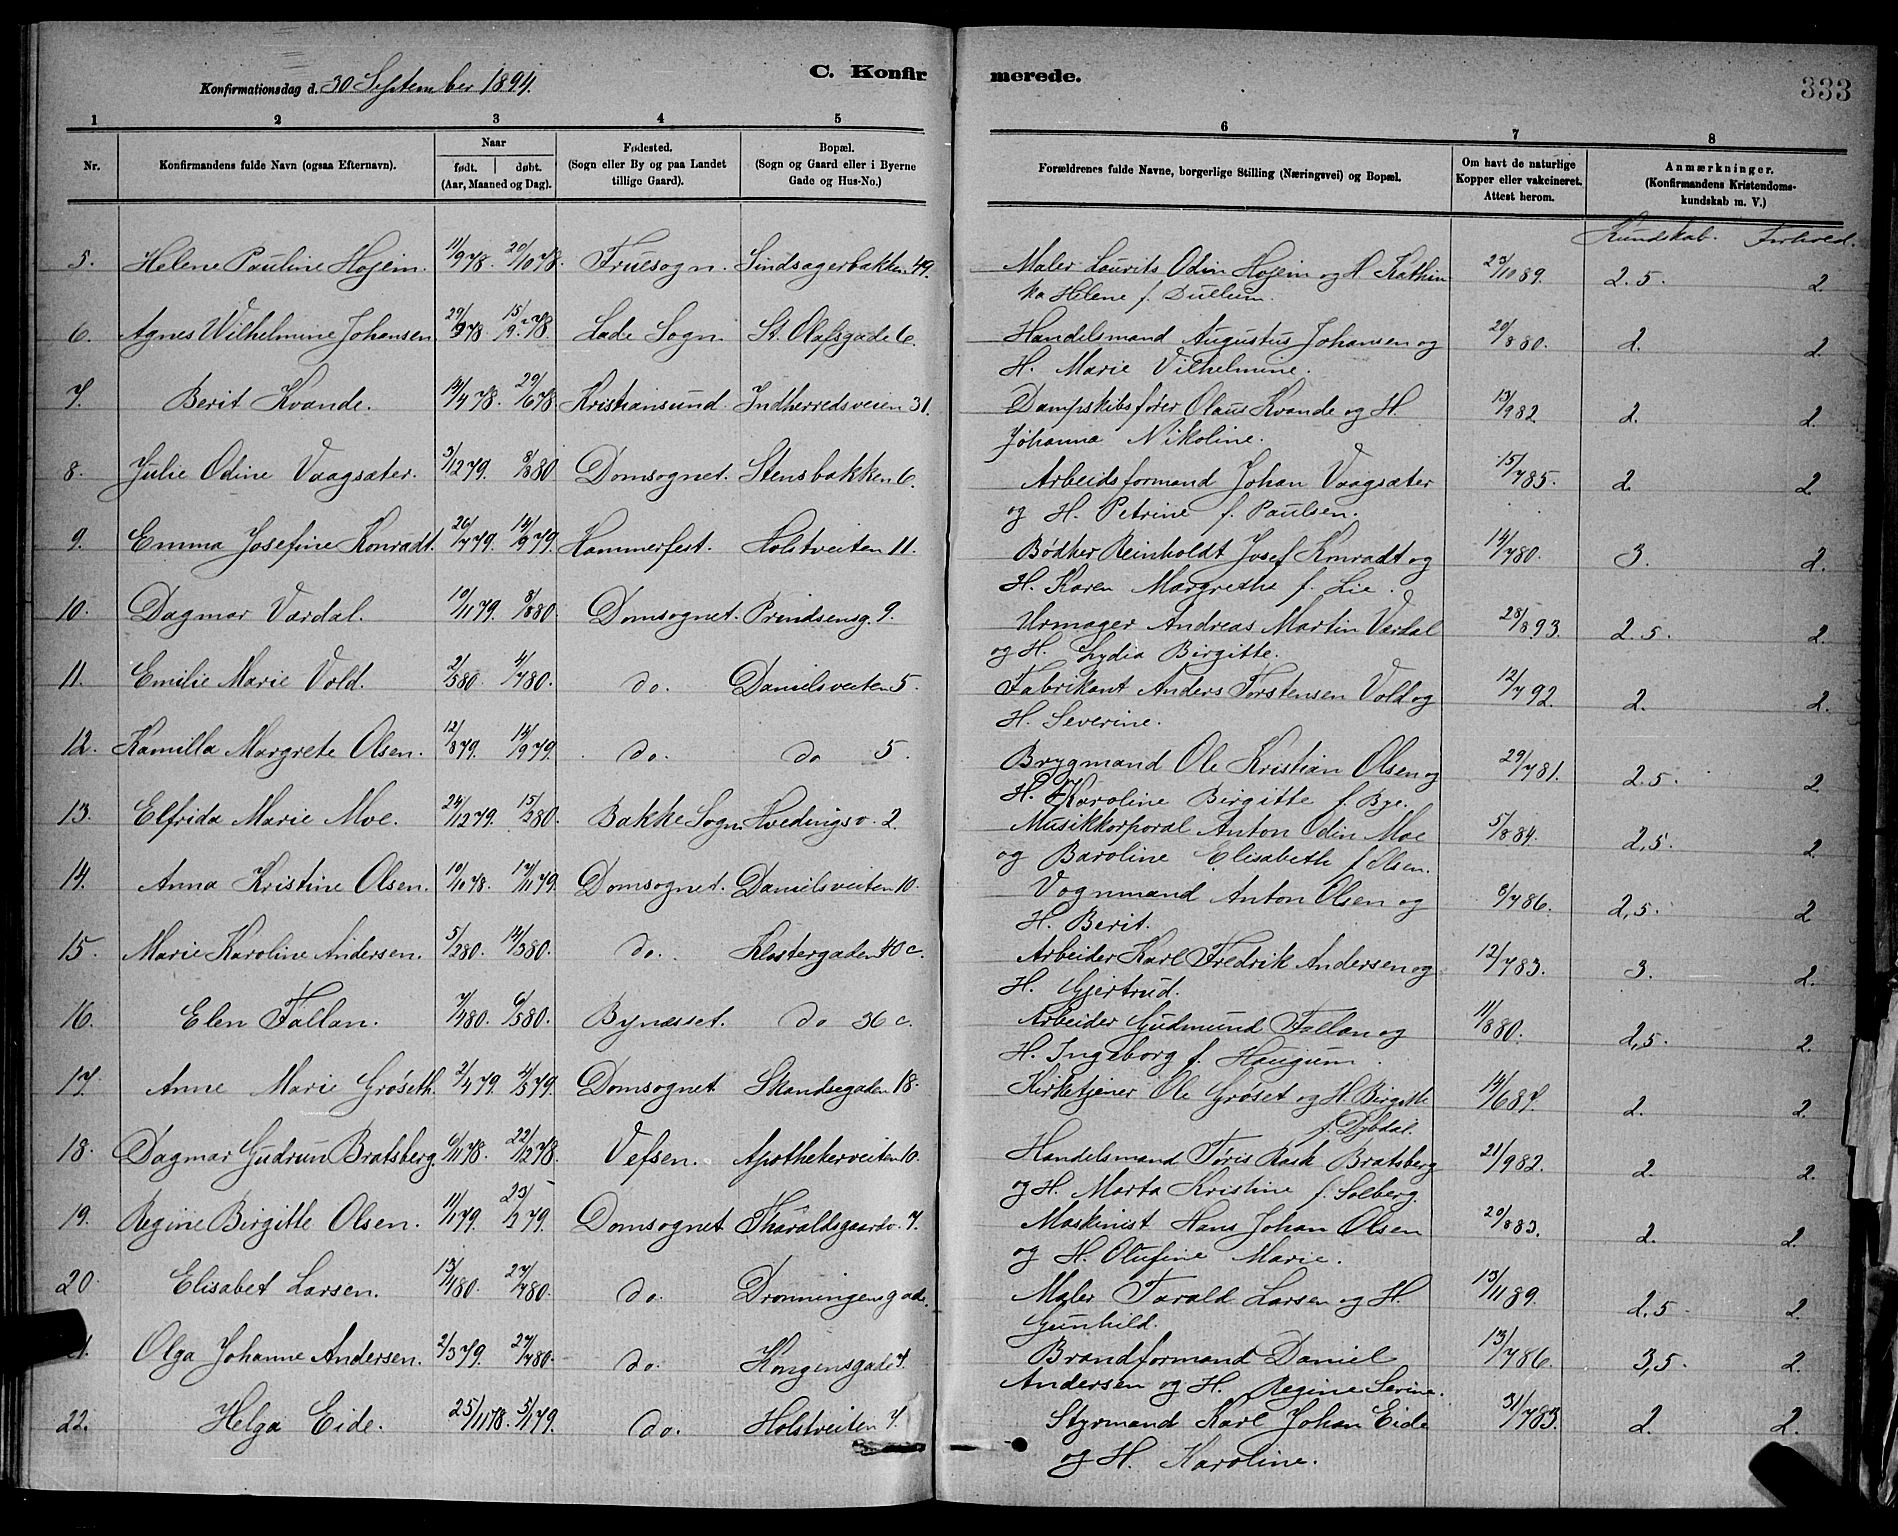 333
Konfirmationsdag d. 30 September 1894.
C. Konfirmerede.
1 2 3 4 5 6 7 8
Nr.
Konfirmandens fulde Navn (ogsaa Efternavn).
Naar
født. døbt.
(Aar, Maaned og Dag).
Fødested.
(Sogn eller By og paa Landet
tillige Gaard).
Bopæl.
(Sogn og Gaard eller i Byerne
Gade og Hus-No.)
Forældrenes fulde Navne, borgerlige Stilling (Næringsvei) og Bopæl.
Om havt de naturlige
Kopper eller vakcineret.
Attest herom.
Anmærkninger.
(Konfirmandens Kristendoms-
kundskab m. V.)
Kundskab. Forhold.
5. Helene Pauline Hojem. 11/9 78. 20/10 78. Fruesogn. Sindsagerbakken 49. Maler Laurits Odin Hojem og H. Kathin 23/10 89. 2.5. 2
ka Helene f. Dullum.
6. Agnes Wilhelmine Johansen 78. 15/9 78. Lade Sogn. St. Olafsgade 6. Handelsmand Augustus Johansen og 20/8 80. 2. 2.
H. Marie Vilhelmine.
7. Berit Kvande. 14/4 78. 29/6 78. Kristiansund. Indherredsveien 31. Dampskibsfører Olaus Kvande og H. 13/9 82. 2. 2.
Johanna Nikoline.
8. Julie Odine Vaagsæter. 3/12 79. 8/8 80. Domsognet. Stensbakken 6. Arbeidsformand Johan Vaagsæter 15/7 85. 2. 2.
og H. Petrine f. Paulsen.
9. Emma Josefine Konradt. 20/7 79. 14/9 79. Hammerfest. Holstveiten 11. Bødker Reinholdt Josef Konradt og 14/7 80. 3. 2.
H. Karen Margrethe f. Lie.
10. Dagmar Vardal. 10/11 79. 8/8 80. Domsognet. Prindsensg. 9. Urmager Andreas Martin Vardal 28/8 93. 2.5. 2.
og H. Lydia Birgitte.
11. Emilie Marie Vold. 2/5 80. 4/7 80. do. Danielsveiten 5. Fabrikant Anders Torstensen Vold og 12/7 92. 2. 2.
H. Severine.
12. Kamilla Margrete Olsen. 12/8 79. 14/9 79. do. do 5. Brygmand Ole Kristian Olsen og 29/7 81. 2.5. 2
H. Karoline Birgitte f. Bye.
13. Elfrida Marie Moe. 24/12 79. 15/2 80. Bakke Sogn Hvedingsv. 2. Musikkorporal Anton Odin Moe 5/8 84. 2,5. 2.
og Baroline Elisabeth f. Olsen.
14. Anna Kristine Olsen. 10/10 78. 79. Domsognet. Danielsveiten 10. Vognmand Anton Olsen og 6/7 86. 2,5. 2
H. Berit.
15. Marie Karoline Andersen. 5/2 80. 14/3 80. do. Klostergaden 40 c. Arbeider Karl Fredrik Andersen og 12/7 83. 3. 2.
H. Gjertrud.
16. Elen Fallan. 7/1 80. 6/5 80. Bynæsset. do 36 c. Arbeider Gudmund Fallan og 11/8 80. 2,5. 2.
H. Ingeborg f. Haugum.
17. Anne Marie Grøseth. 2/4 79. 4/5 79. Domsognet Skandsegaden 18. Kirketjener Ole Grøset og H. Birgitte 14/6 87. 2. 2.
f. Dybdal.
18. Dagmar Gudrun Bratsberg. 6/11 78. 22/12 78. Vefsen. Apothekerveiten 10. Handelsmand Tøris Rask Bratsberg 21/9 82. 2. 2.
og H. Marta Kristine f. Solberg.
19. Regine Birgitte Olsen. 11/1 79. 23/3 79. Domsognet Tharaldsgaardv. 7. Maskinist Hans Johan Olsen 20/8 83. 2. 2.
og H. Olufine Marie.
20. Elisabet Larsen. 13/1 80. 80. do. Dronningensgade. Maler Tarald Larsen og H. 13/11 89. 2,5. 2.
Gunhild.
21. Olga Johanne Andersen. 2/3 79. 80. do. Kongensgade 7. Brandformand Daniel 13/7 86. 3,5. 2.
Andersen og H. Regine Serine.
22. Helga Eide. 25/11 78. 5/1 79. do. Holstveiten 7. Styrmand Karl Johan Eide 31/7 83. 2. 2.
og H. Karoline.